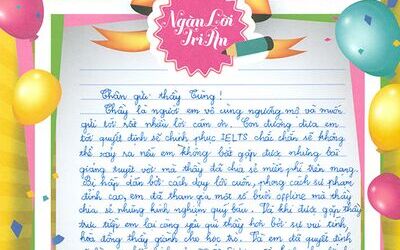 Ngàn Lời
Tri Ân
Thân gửi thầy Tùng!
Thầy là người em vô cùng ngưỡng mộ và muốn
gửi tới rất nhiều lời cảm ơn. Con đường đưa em
tới quyết định sẽ chinh phục IELTS chắc chắn sẽ không
thể xảy ra nếu em không bắt gặp được những bài
giảng tuyệt vời mà thầy đã chia sẻ miễn phí trên mạng.
Bị hấp dẫn bởi cách dạy lôi cuốn, phong cách sư phạm
đỉnh cao, em đã tham gia một số buổi offline mà thầy
chia sẻ những kinh nghiệm quý báu. Và khi được gặp thầy
trực tiếp em lại càng yêu quý thầy hơn bởi sự vui tính,
hòa đồng thầy giành cho học trò. Và em đã quyết định